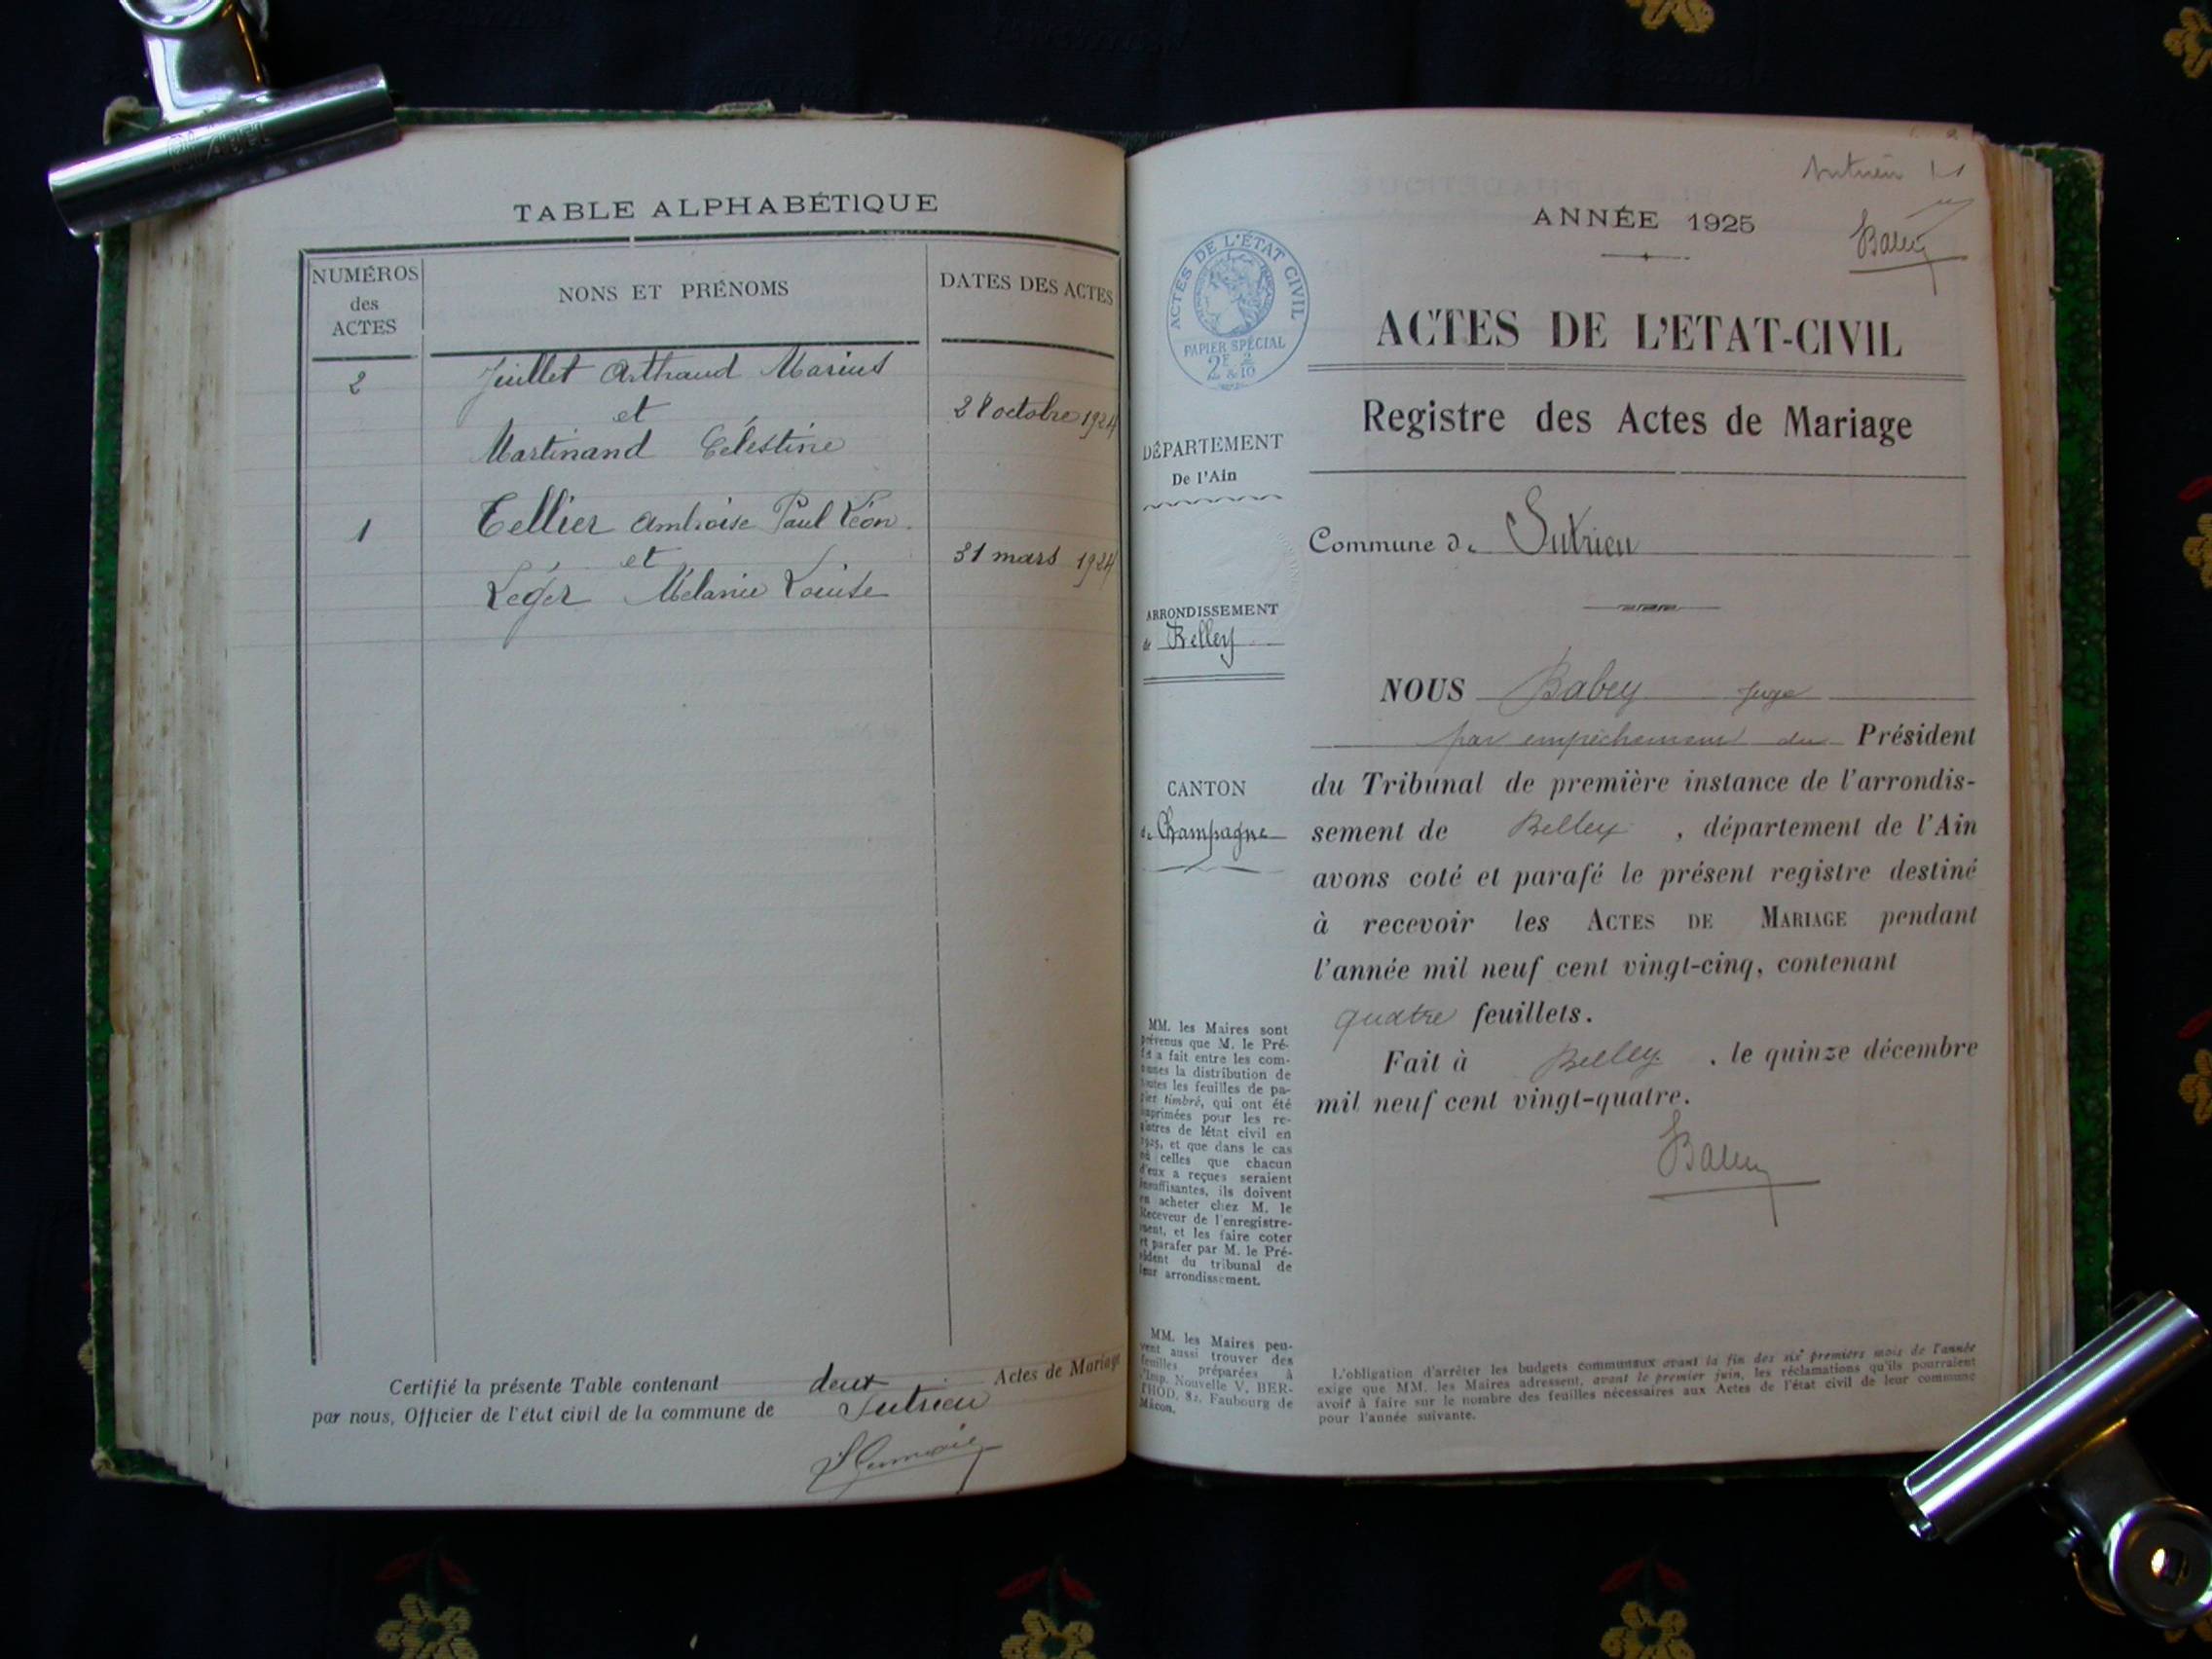 TABLE ALPHABÉTIQUE
NUMÉROS
des
ACTES
NONS ET PRÉNOMS
DATES DES ACTES
2
Juillet Arthaud Marius
et
Martinand Célestine
28 octobre 1924
1
Tellier Ambroise Paul Léon
et
Léger Mélanie Louise
31 mars 1924
Certifié la présente Table contenant deux Actes de Mariage
par nous, Officier de l'état civil de la commune de Sutrieu
Sutrieu
ANNÉE 1925
Babey
ACTES DE L'ÉTAT CIVIL
PAPIER SPÉCIAL
2F 2
& 10
ACTES DE L'ETAT-CIVIL
Registre des Actes de Mariage
DÉPARTEMENT
De l'Ain
Commune de Sutrieu
ARRONDISSEMENT
de Belley
CANTON
de Champagne
NOUS Babey Juge
par empêchement du Président
du Tribunal de première instance de l'arrondis-
sement de Belley, département de l'Ain
avons coté et parafé le présent registre destiné
à recevoir les ACTES DE MARIAGE pendant
l'année mil neuf cent vingt-cinq, contenant
quatre feuillets.
Fait à Belley, le quinze décembre
mil neuf cent vingt-quatre.
Babey
MM. les Maires sont
prévenus que M. le Pré-
fet a fait entre les com-
munes la distribution de
toutes les feuilles de pa-
pier timbré, qui ont été
imprimées pour les re-
gistres de létat civil en
1925, et que dans le cas
où celles que chacun
d'eux a reçues seraient
insuffisantes, ils doivent
en acheter chez M. le
Receveur de l'enregistre-
ment, et les faire coter
et parafer par M. le Pré-
sident du tribunal de
leur arrondissement.
MM. les Maires peu-
vent aussi trouver des
feuilles préparées à
l'Imp. Nouvelle V. BER-
THOD, 82, Faubourg de
Mâcon.
L'obligation d'arrêter les budgets communaux avant la fin des six premiers mois de l'année
exige que MM. les Maires adressent, avant le premier juin, les réclamations qu'ils pourraient
avoir à faire sur le nombre des feuilles nécessaires aux Actes de l'état civil de leur commune
pour l'année suivante.